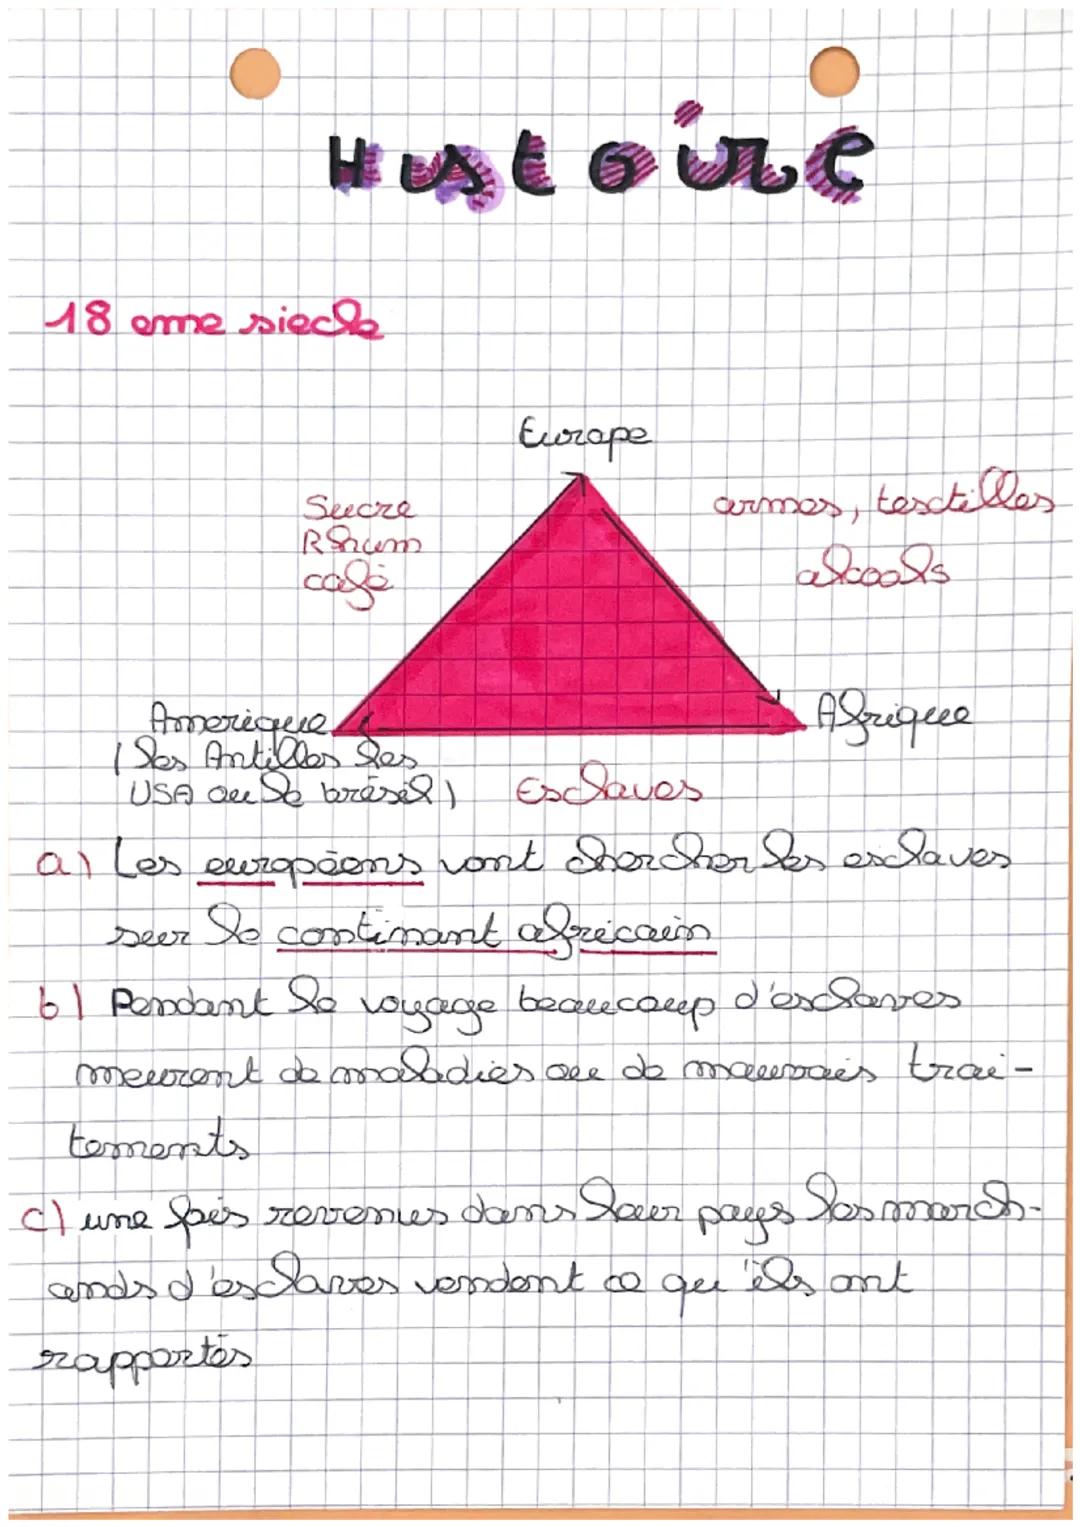 Histoire
18 eme siecle
Europe
Sucre
Rhum
café
armes, textilles
alcools
Amerique
(les Antilles les
USA ou le brésil)
Afrique
Esclaves
a) Les européens vont chercher les esclaves
sur le continant africain
b) Pendant le voyage beaucoup d'esclaves
meurent de maladies ou de mauvais trai-
tements
c) une fois revenus dans leur pays les march-
ands d'esclaves vendent ce qu'ils ont
rapportés